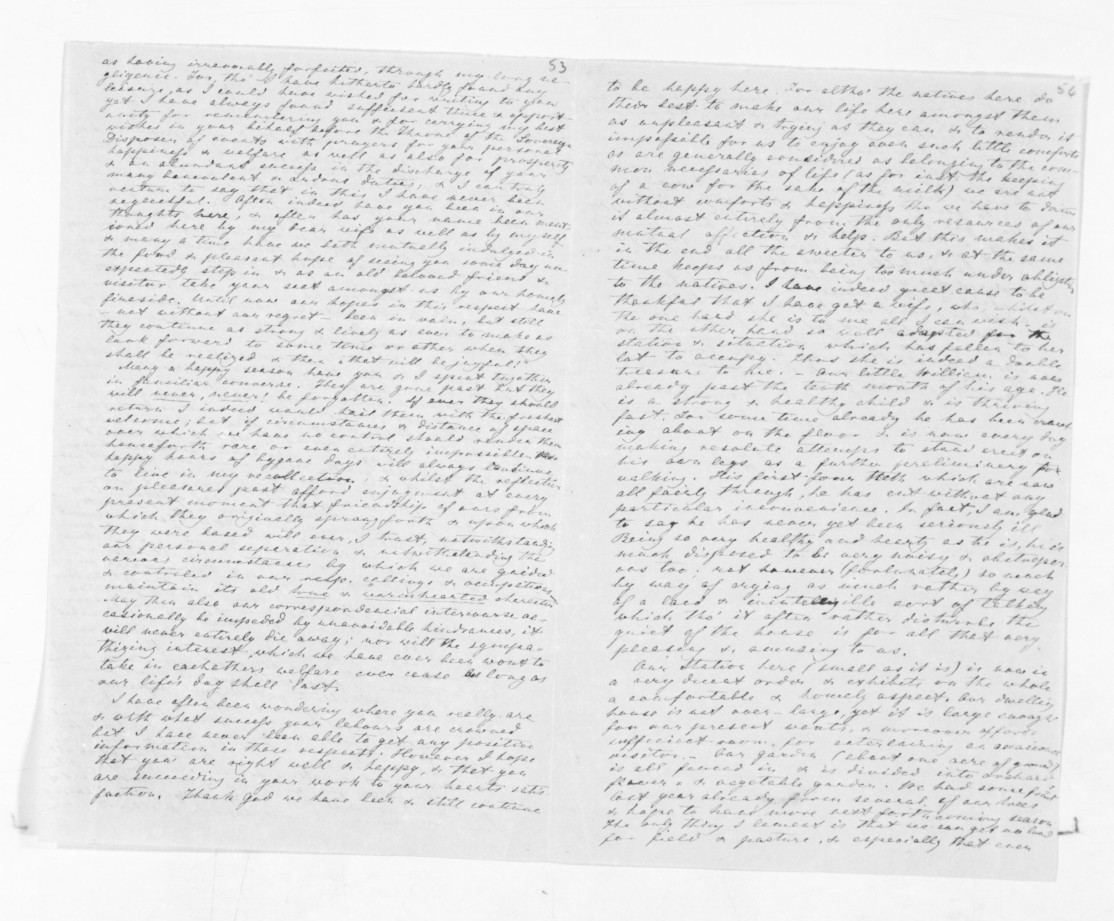 53
as having irrevocably forfeited, through my long ne-
gligence. For, tho' I have hitherto hardly found any
leisure, as I could have wished for writing to you
yet I have always found sufficient time & opport-
unity for remembering you & for carrying my best
wishes in your behalf before the Throne of the Sovereign
Disposer of events with prayers for your personal
happiness & welfare as well as also for prosperity
& an abundant success in the discharge of your
many benevolent & arduous duties; & I can truly
venture to say that in this I have never been
neglectful. Often indeed have you been in our
thoughts here, & often has your name been ment-
ioned here by my dear wife as well as by myself
& many a time have we both mutually indulged in
the fond & pleasant hope of seeing you some day un-
expectedly stop in & as an old beloved friend &
visitor take your seat amongst us by our homely
fireside. Until now our hopes in this respect have
- not without our regret - been in vain, but still
they continue as strong & lively as ever to make us
look forward to some time or other when they
shall be realized & then that will be joyful!
Many a happy season have you & I spent together
in familiar converse. They are gone past but they
will never, never! be forgotten. If ever they should
return I indeed would hail them with the freshest
welcome; but if circumstances & distance of space
over which we have no control should render them
henceforth rare or even entirely impossible, the
happy hours of bygone days will always continue
to live in my recollection, & whilst the reflection
on pleasures past afford enjoyment at every
present moment that friendship of ours from
which they originally sprang forth & upon which
they were based will ever, I trust, notwithstanding
our personal separation & notwithstanding the
various circumstances by which we are guided
& controled in our resp. callings & occupations
maintain its old true & warmhearted character.
May then also our correspondencial intercourse oc-
casionally be impeded by unavoidable hindrances, it
will never entirely die away; nor will the sympa-
thizing interest, which we have ever been wont to
take in eachothers welfare ever cease as long as
our life's day shall last.
I have often been wondering where you really are
& with what success your labours are crowned
but I have never been able to get any positive
information in those respects. However I hope
that you are right well & happy, & that you
are succeeding in your work to your hearts satis-
faction. Thank God we have been & still continue
54
to be happy here. For altho' the natives here do
their best to make our life here amongst them
as unpleasant & trying as they can & to render it
impossible for us to enjoy even such little comforts
as are generally considered as belonging to the com-
mon necessaries of life (as for inst. the keeping
of a cow for the sake of the milk) we are not
without comforts & happiness tho' we have to derive
it almost entirely from the only resources of our
mutual affection & help. But this makes it
in the end all the sweeter to us, & at the same
time keeps us from being too much under obligation
to the natives. I have indeed great cause to be
thankful that I have got a wife, who, whilst on
the one hand she is to me all I can wish, is
on the other hand so well adapted for the
station & situation which has fallen to her
lot to occupy. Thus she is indeed a double
treasure to me. - Our little William is now
already past the tenth month of his age. He
is a strong & healthy child & is thriving
fast. For some time already he has been crawl-
ing about on the floor & is now every day
making resolute attempts to stand erect on
his own legs as a further preliminary for
walking. His first four teeth which are now
all fairly through, he has cut without any
particular inconvenience. In fact I am glad
to say he has never yet been seriously ill
Being so very healthy and hearty as he is, he is
much disposed to be very noisy & obstreper-
ous too; not however (fortunately) so much
by way of crying as much rather by way
of a loud & unintelligible sort of talking
which tho' it often rather disturbs the
quiet of the house is for all that very
pleasing & amusing to us.
Our Station here (small as it is) is now in
a very decent order & exhibits on the whole
a comfortable & homely aspect. Our dwelling
house is not over-large, yet it is large enough
for our present wants, & moreover affords
sufficient room for entertaining an occasional
visitor. - Our garden (about one acre of ground)
is all fenced in & is divided into orchard
flower & vegetable garden. We had some fruit
last year already from several of our trees
& hope to have more next forthcoming season
The only thing I lament is that we can get no land
for field & pasture, & especially that even